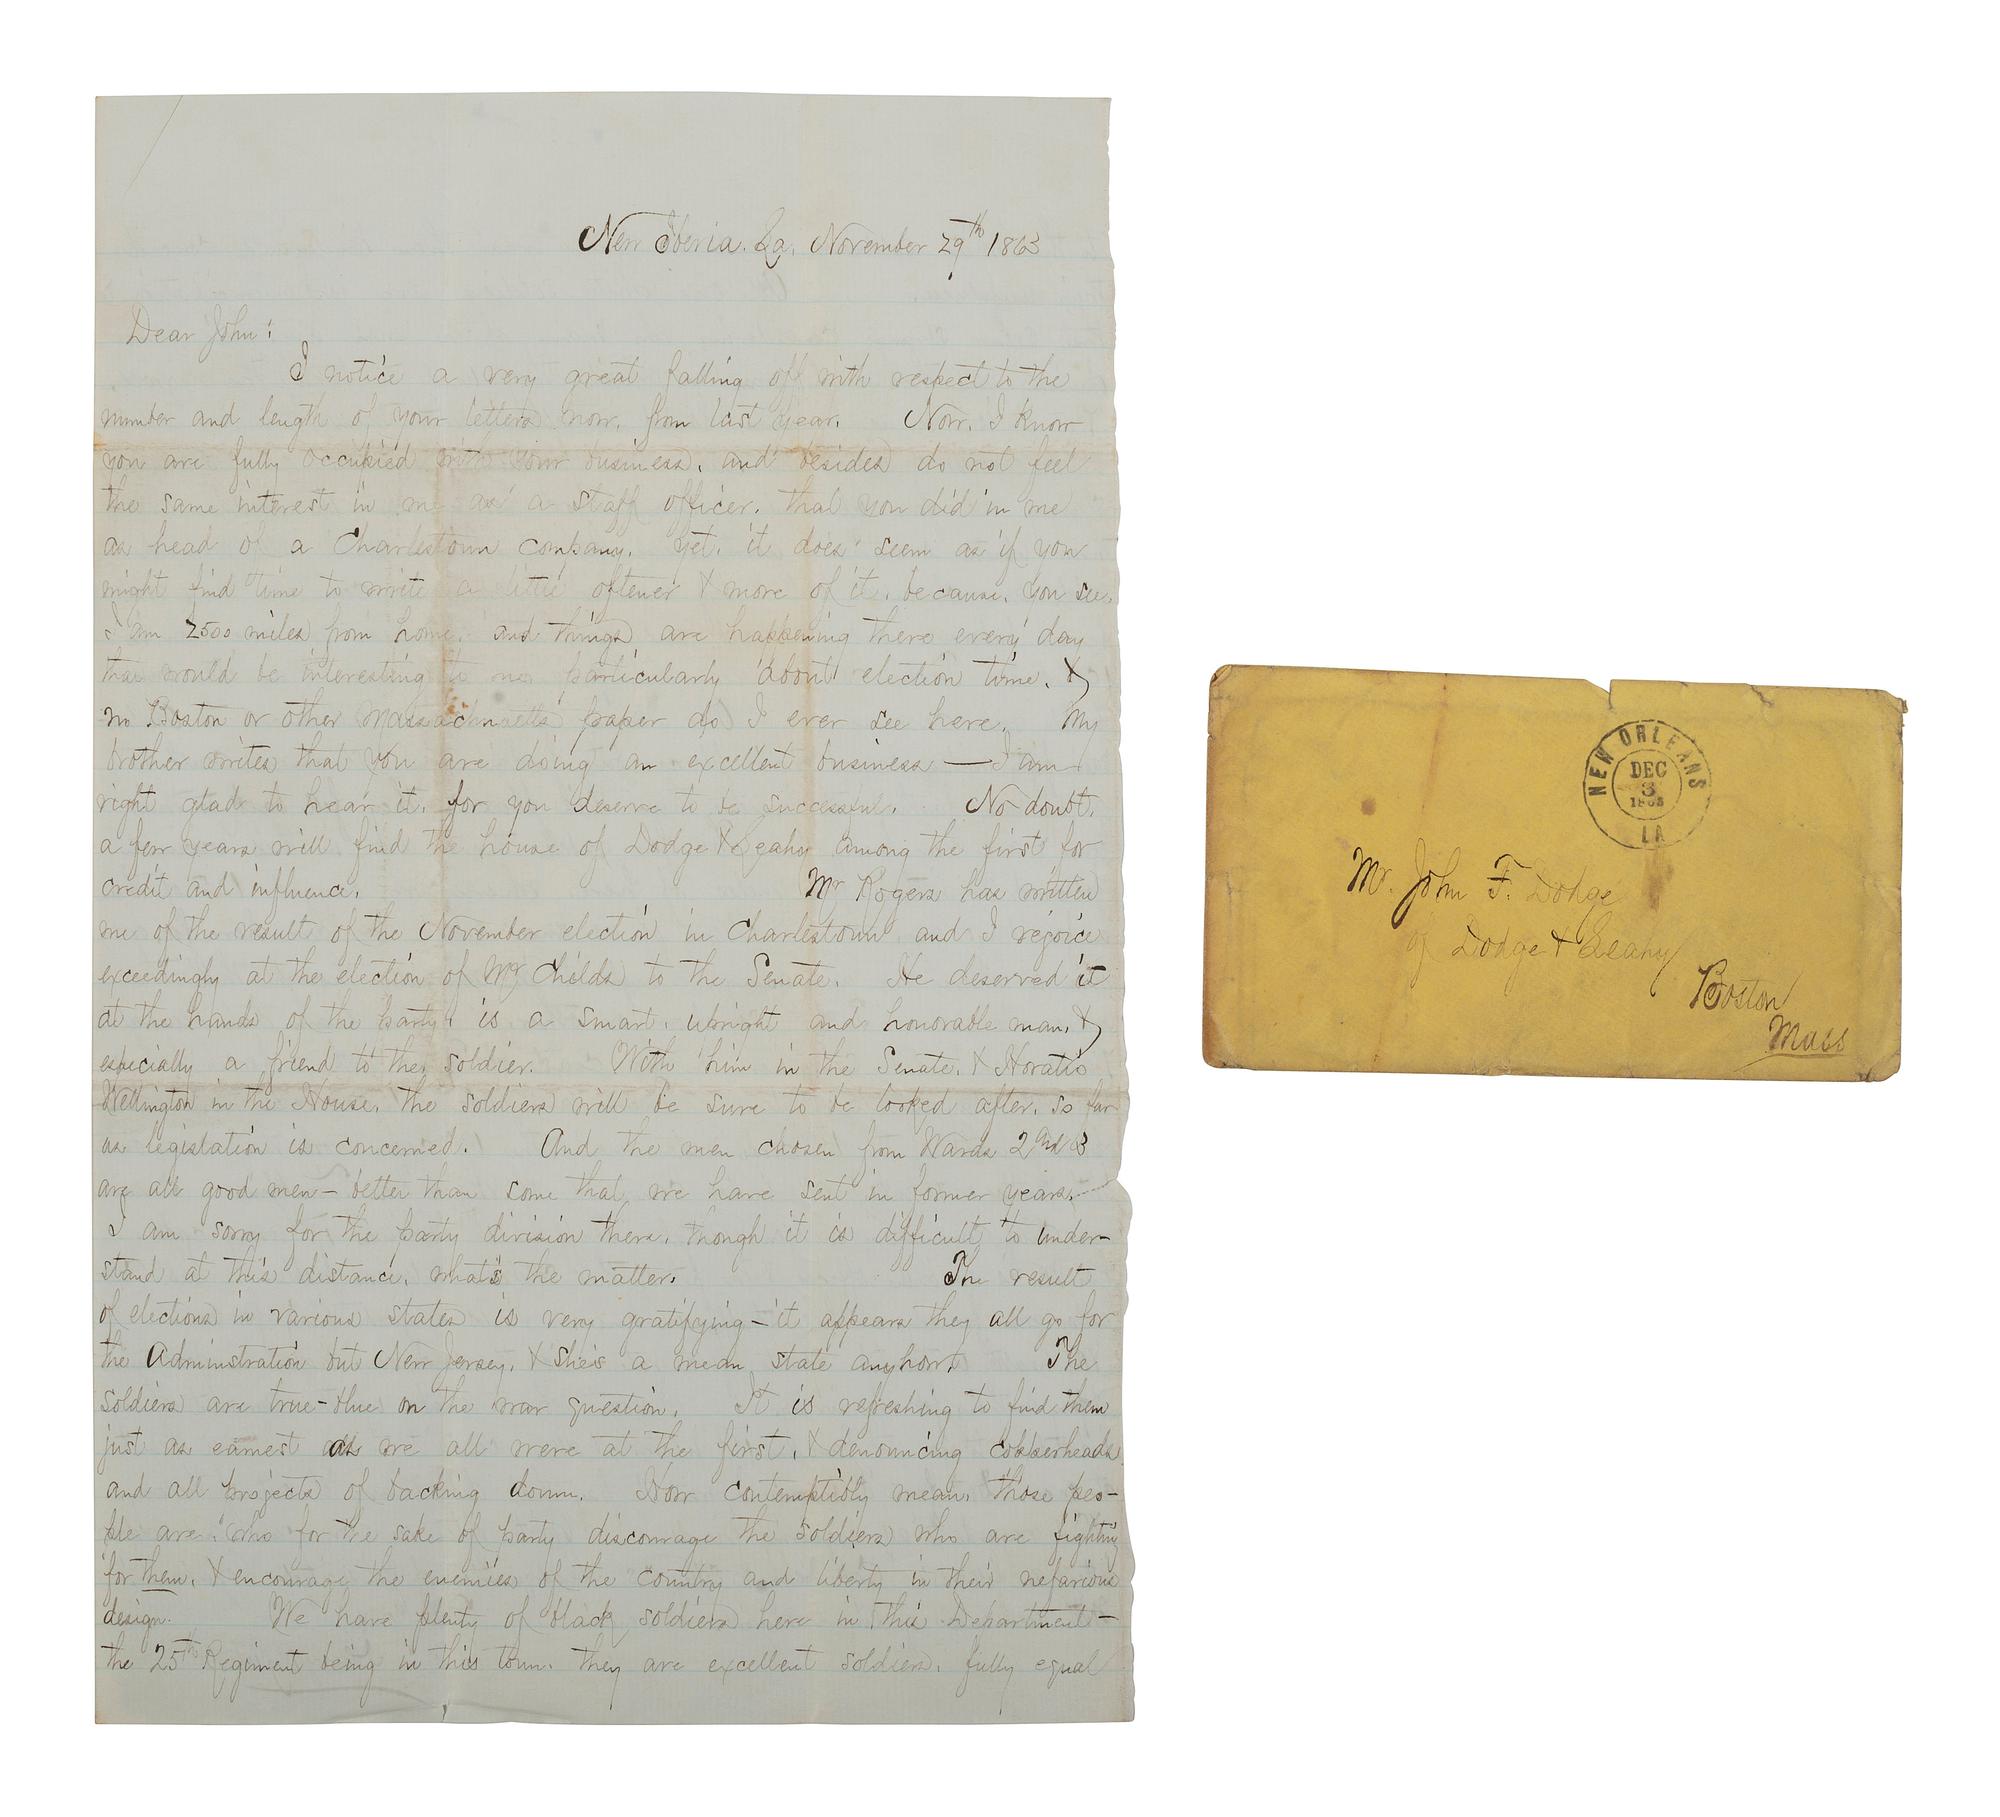 New Iberia. La. November 29th 1863
Dear John:
I notice a very great falling off with respect to the
number and length of your letters now, from last year. Now, I know
you are fully occupied with your business, and besides do not feel
the same interest in me as a staff officer, that you did in me
as head of a Charlestown company. Yet, it does seem as if you
might find time to write a little oftener & more of it, because, you see,
I am 2500 miles from home, and things are happening there every day
that would be interesting to me, particularly about election time, &
no Boston or other Massachusetts paper do I ever see here. My
brother writes that you are doing an excellent business — I am
right glad to hear it, for you deserve to be successful. No doubt,
a few years will find the house of Dodge & Leahy among the first for
credit and influence. Mr Rogers has written
me of the result of the November election in Charlestown and I rejoice
exceedingly at the election of Mr Childs to the Senate. He deserved it
at the hands of the party, is a smart, upright and honorable man, &
especially a friend to the soldier. With him in the Senate, & Horatio
Wellington in the House, the soldiers will be sure to be looked after, so far
as legislation is concerned. And the men chosen from Wards 2 and 3
are all good men — better than some that we have sent in former years.
I am sorry for the party division there, though it is difficult to under-
stand at this distance, what's the matter. The result
of elections in various states is very gratifying — it appears they all go for
the Administration but New Jersey, & she's a mean state anyhow. The
soldiers are true-blue on the war question. It is refreshing to find them
just as earnest as we all were at the first, & denouncing copperheads
and all projects of backing down. How contemptibly mean, those peo-
ple are, who for the sake of party discourage the soldiers who are fighting
for them, & encourage the enemies of the country and liberty in their nefarious
design. We have plenty of black soldiers here in this Department —
the 25th Regiment being in this town. they are excellent soldiers, fully equal
NEW ORLEANS
DEC
3
1863
LA
Mr. John F. Dodge
of Dodge & Leahy
Boston
Mass